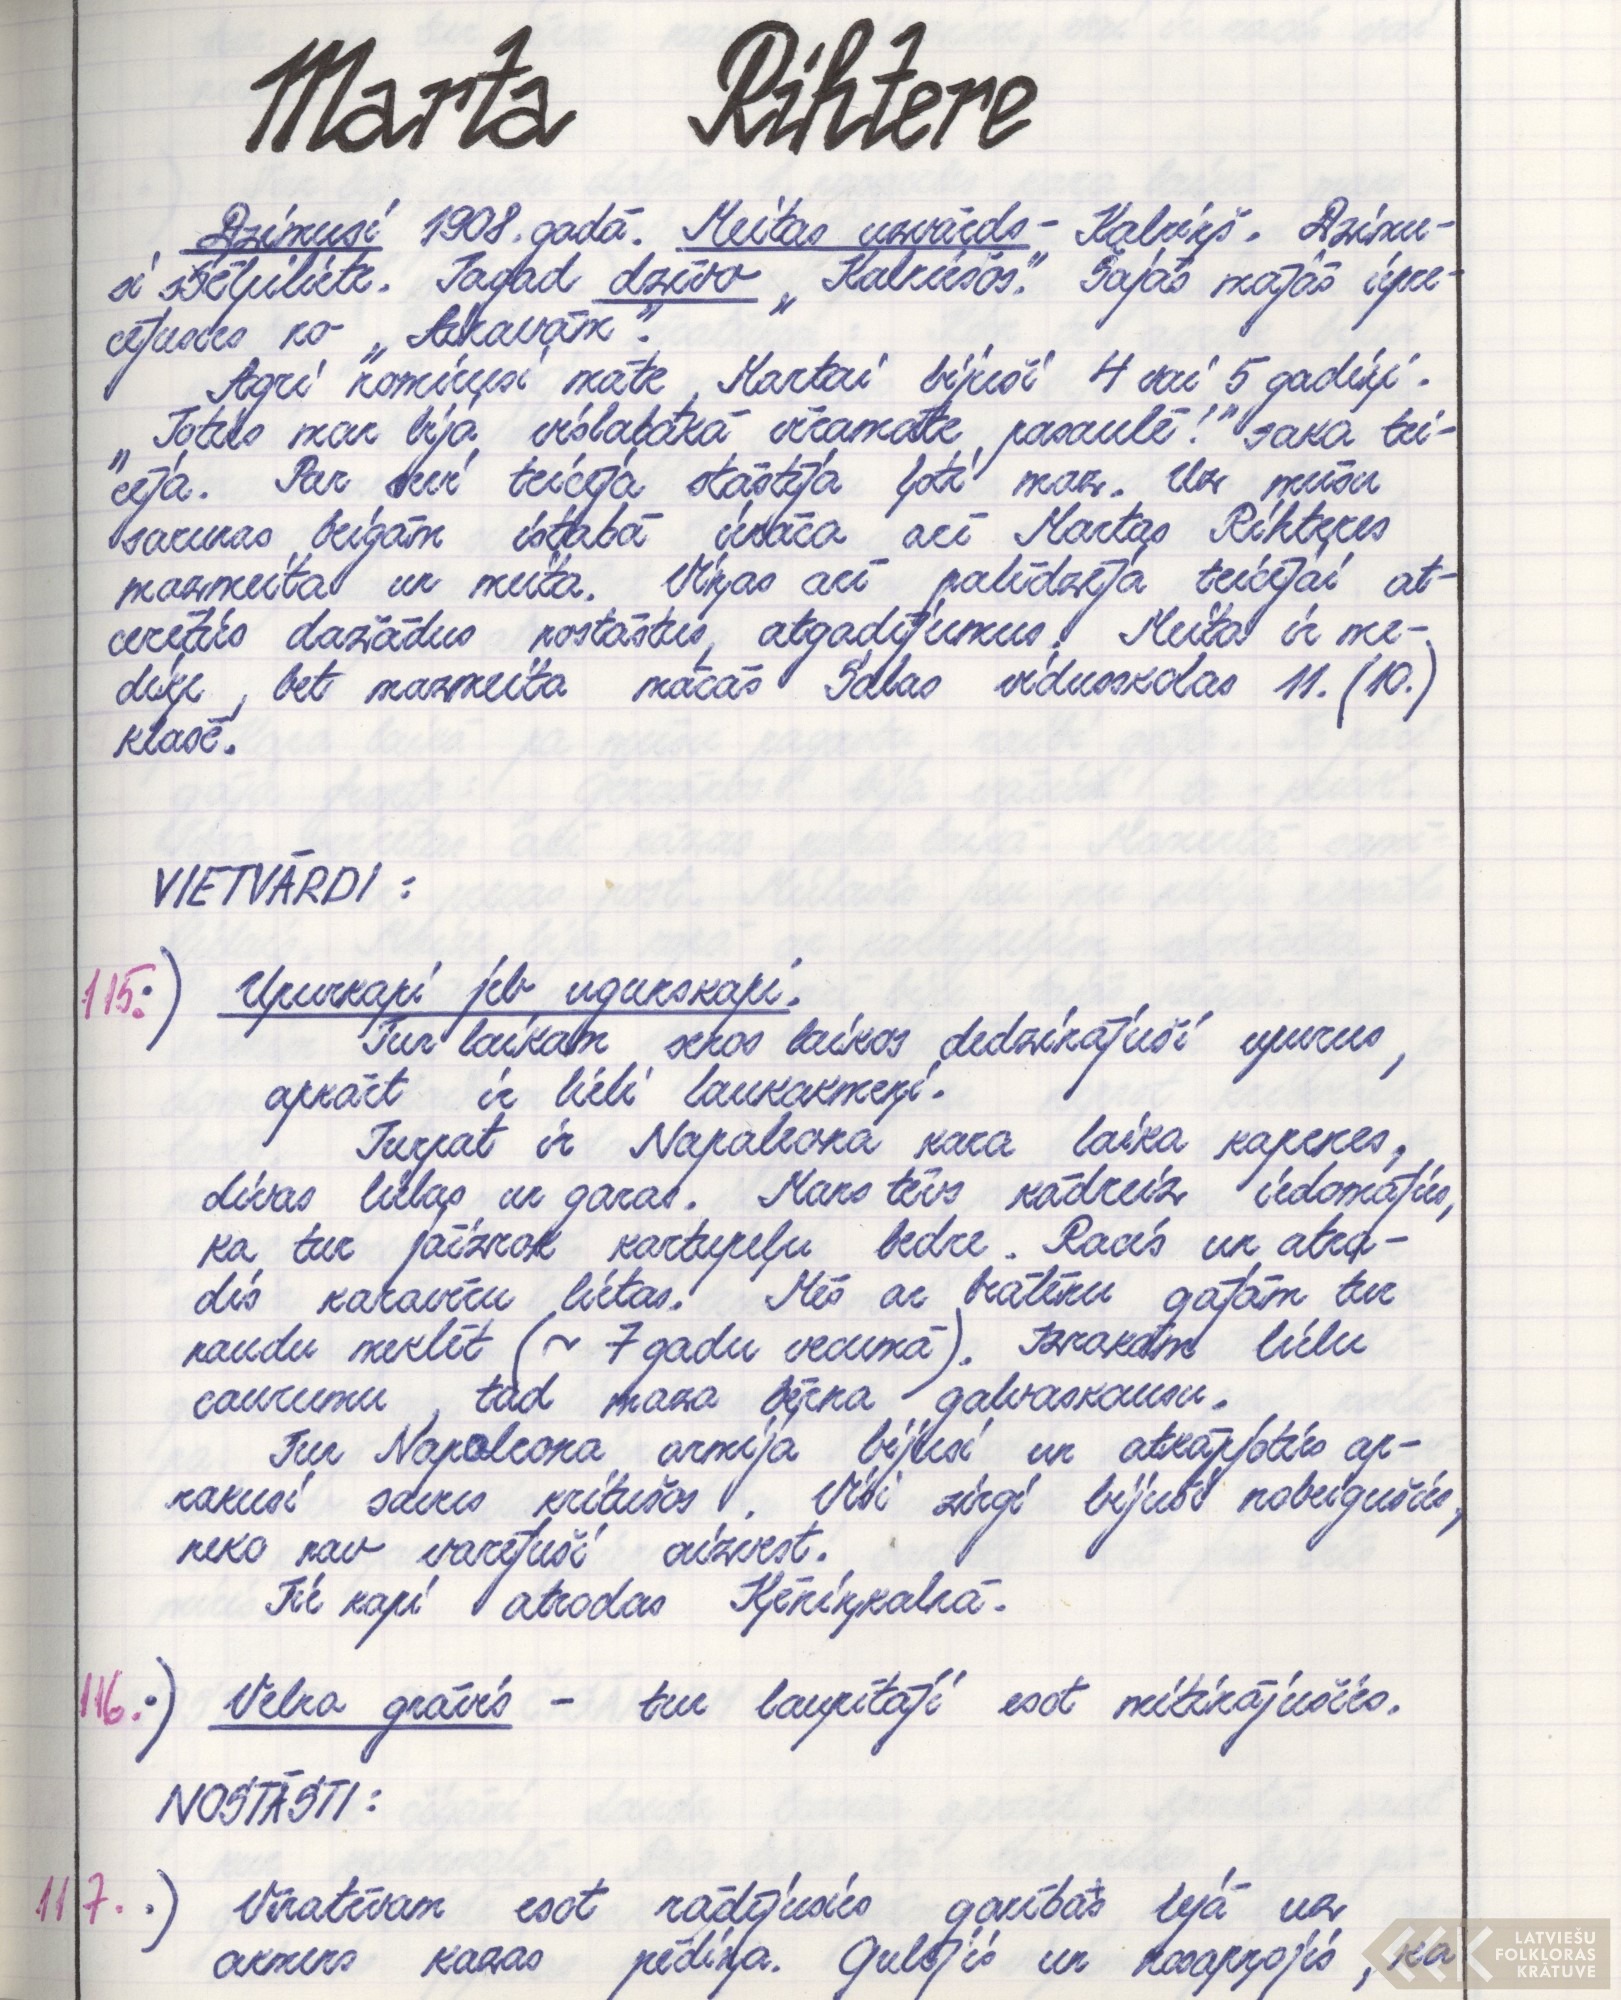 Marta Rihtere
Dzimusi 1908. gadā. Meitas uzvārds - Kalniņš. Dzimu-
si sēļpiliete. Tagad dzīvo „Kalniešos." Šajās mājās iepre-
cējusies no „Aknavām".
Agri nomirusi māte, Martai bijuši 4 vai 5 gadiņi.
„Toties man bija vislabākā vīramāte pasaulē!" saka tei-
cēja. Par sevi teicēja stāstīja ļoti maz. Uz mūsu
sarunas beigām istabā ienāca arī Martas Rihteres
mazmeita un meita. Viņas arī palīdzēja teicējai at-
cerēties dažādus nostāstus, atgadījumus. Meita ir me-
diķe, bet mazmeita mācās Salas vidusskolas 11. (10.)
klasē.
VIETVĀRDI:
115.) Upurkapi jeb ugunskapi.
Tur laikam senos laikos dedzinājuši upurus,
apkārt ir lieli laukakmeņi.
Turpat ir Napaleona kara laika kapenes,
divas lielas un garas. Mans tēvs kādreiz iedomājies,
ka tur jāizrok kartupeļu bedre. Racis un atra-
dis karavīru lietas. Mēs ar brālēnu gājām tur
naudu meklēt (~ 7 gadu vecumā). Izrakām lielu
caurumu, tad maza bērna galvaskausu.
Tur Napoleona armija bijusi un atkāpjoties ap-
rakusi savus kritušos. Visi zirgi bijuši nobeigušies,
neko nav varējuši aizvest.
Tie kapi atrodas Ķēniņkalnā.
116.) Velna grāvis - tur laupītāji esot mitinājušies.
NOSTĀSTI:
117.) Vīratēvam esot rādījusies garības lejā uz
akmens kazas pēdiņa. Gulējis un nosapņojis, ka
LATVIEŠU
FOLKLORAS
KRĀTUVE